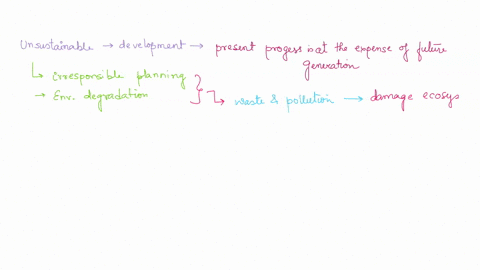 Unsustainable → development → present progess is at the expense of future
generation
↳ Irresponsible planning
→ Env. degradation
↳ waste & pollution → damage ecosys